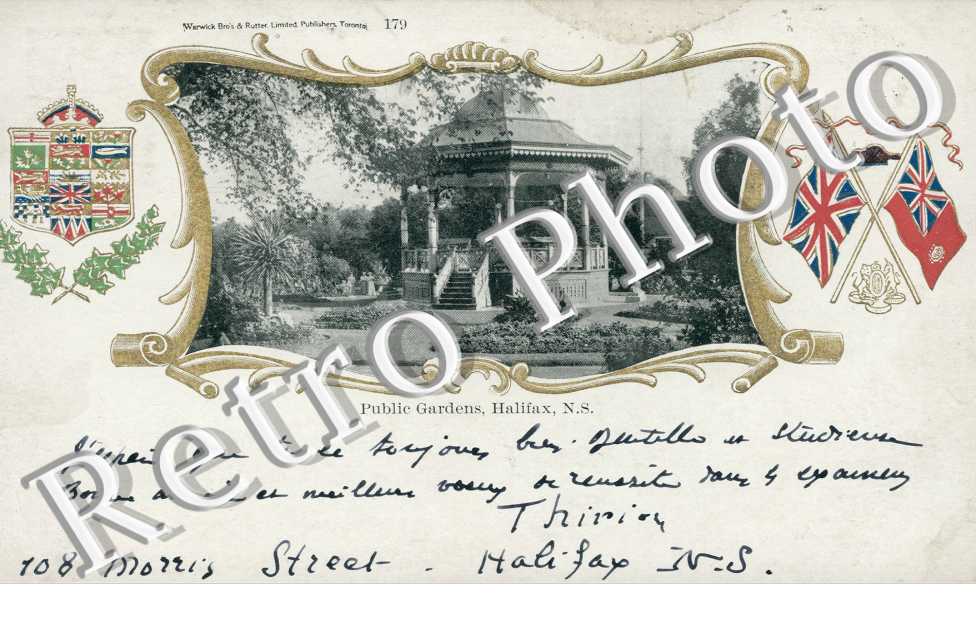 Warwick Bro's & Rutter, Limited, Publishers, Toronto. 179
Retro Photo
Public Gardens, Halifax, N.S.
toujours bien gentille et studieuse
et meilleurs voeux de reussite dans les examens
Thirion
108 Morris Street - Halifax N.S.